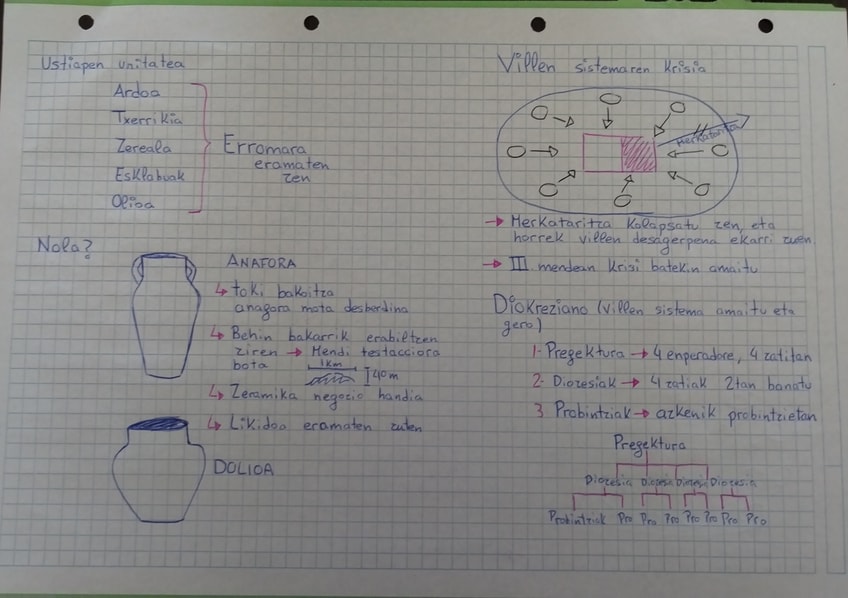 Ustiapen unitatea
Ardoa
Txerrikia
Zereala
Esklabuak
Olioa
Erromara
eramaten
zen
Nola?
ANAFORA
↳ toki bakoitza
anagora mota desberdina
↳ Behin bakarrik erabiltzen
ziren → Mendi testacciora
bota
1km
40m
↳ Zeramika negozio handia
↳ Likidoa eramaten zuten
DOLIOA
Villen sistemaren krisia
Merkataritza
→ Merkataritza kolapsatu zen, eta
horrek villen desagerpena ekarri zuen
→ III mendean krisi batekin amaitu
Diokreziano (villen sistema amaitu eta
gero)
1- Pregektura → 4 enperadore, 4 zatitan
2- Diozesiak → 4 zatiak 2tan banatu
3 Probintziak → azkenik probintzietan
Pregektura
Diozesia Diozesia Diozesia Diozesia
Probintziak Pro Pro Pro Pro Pro Pro Pro